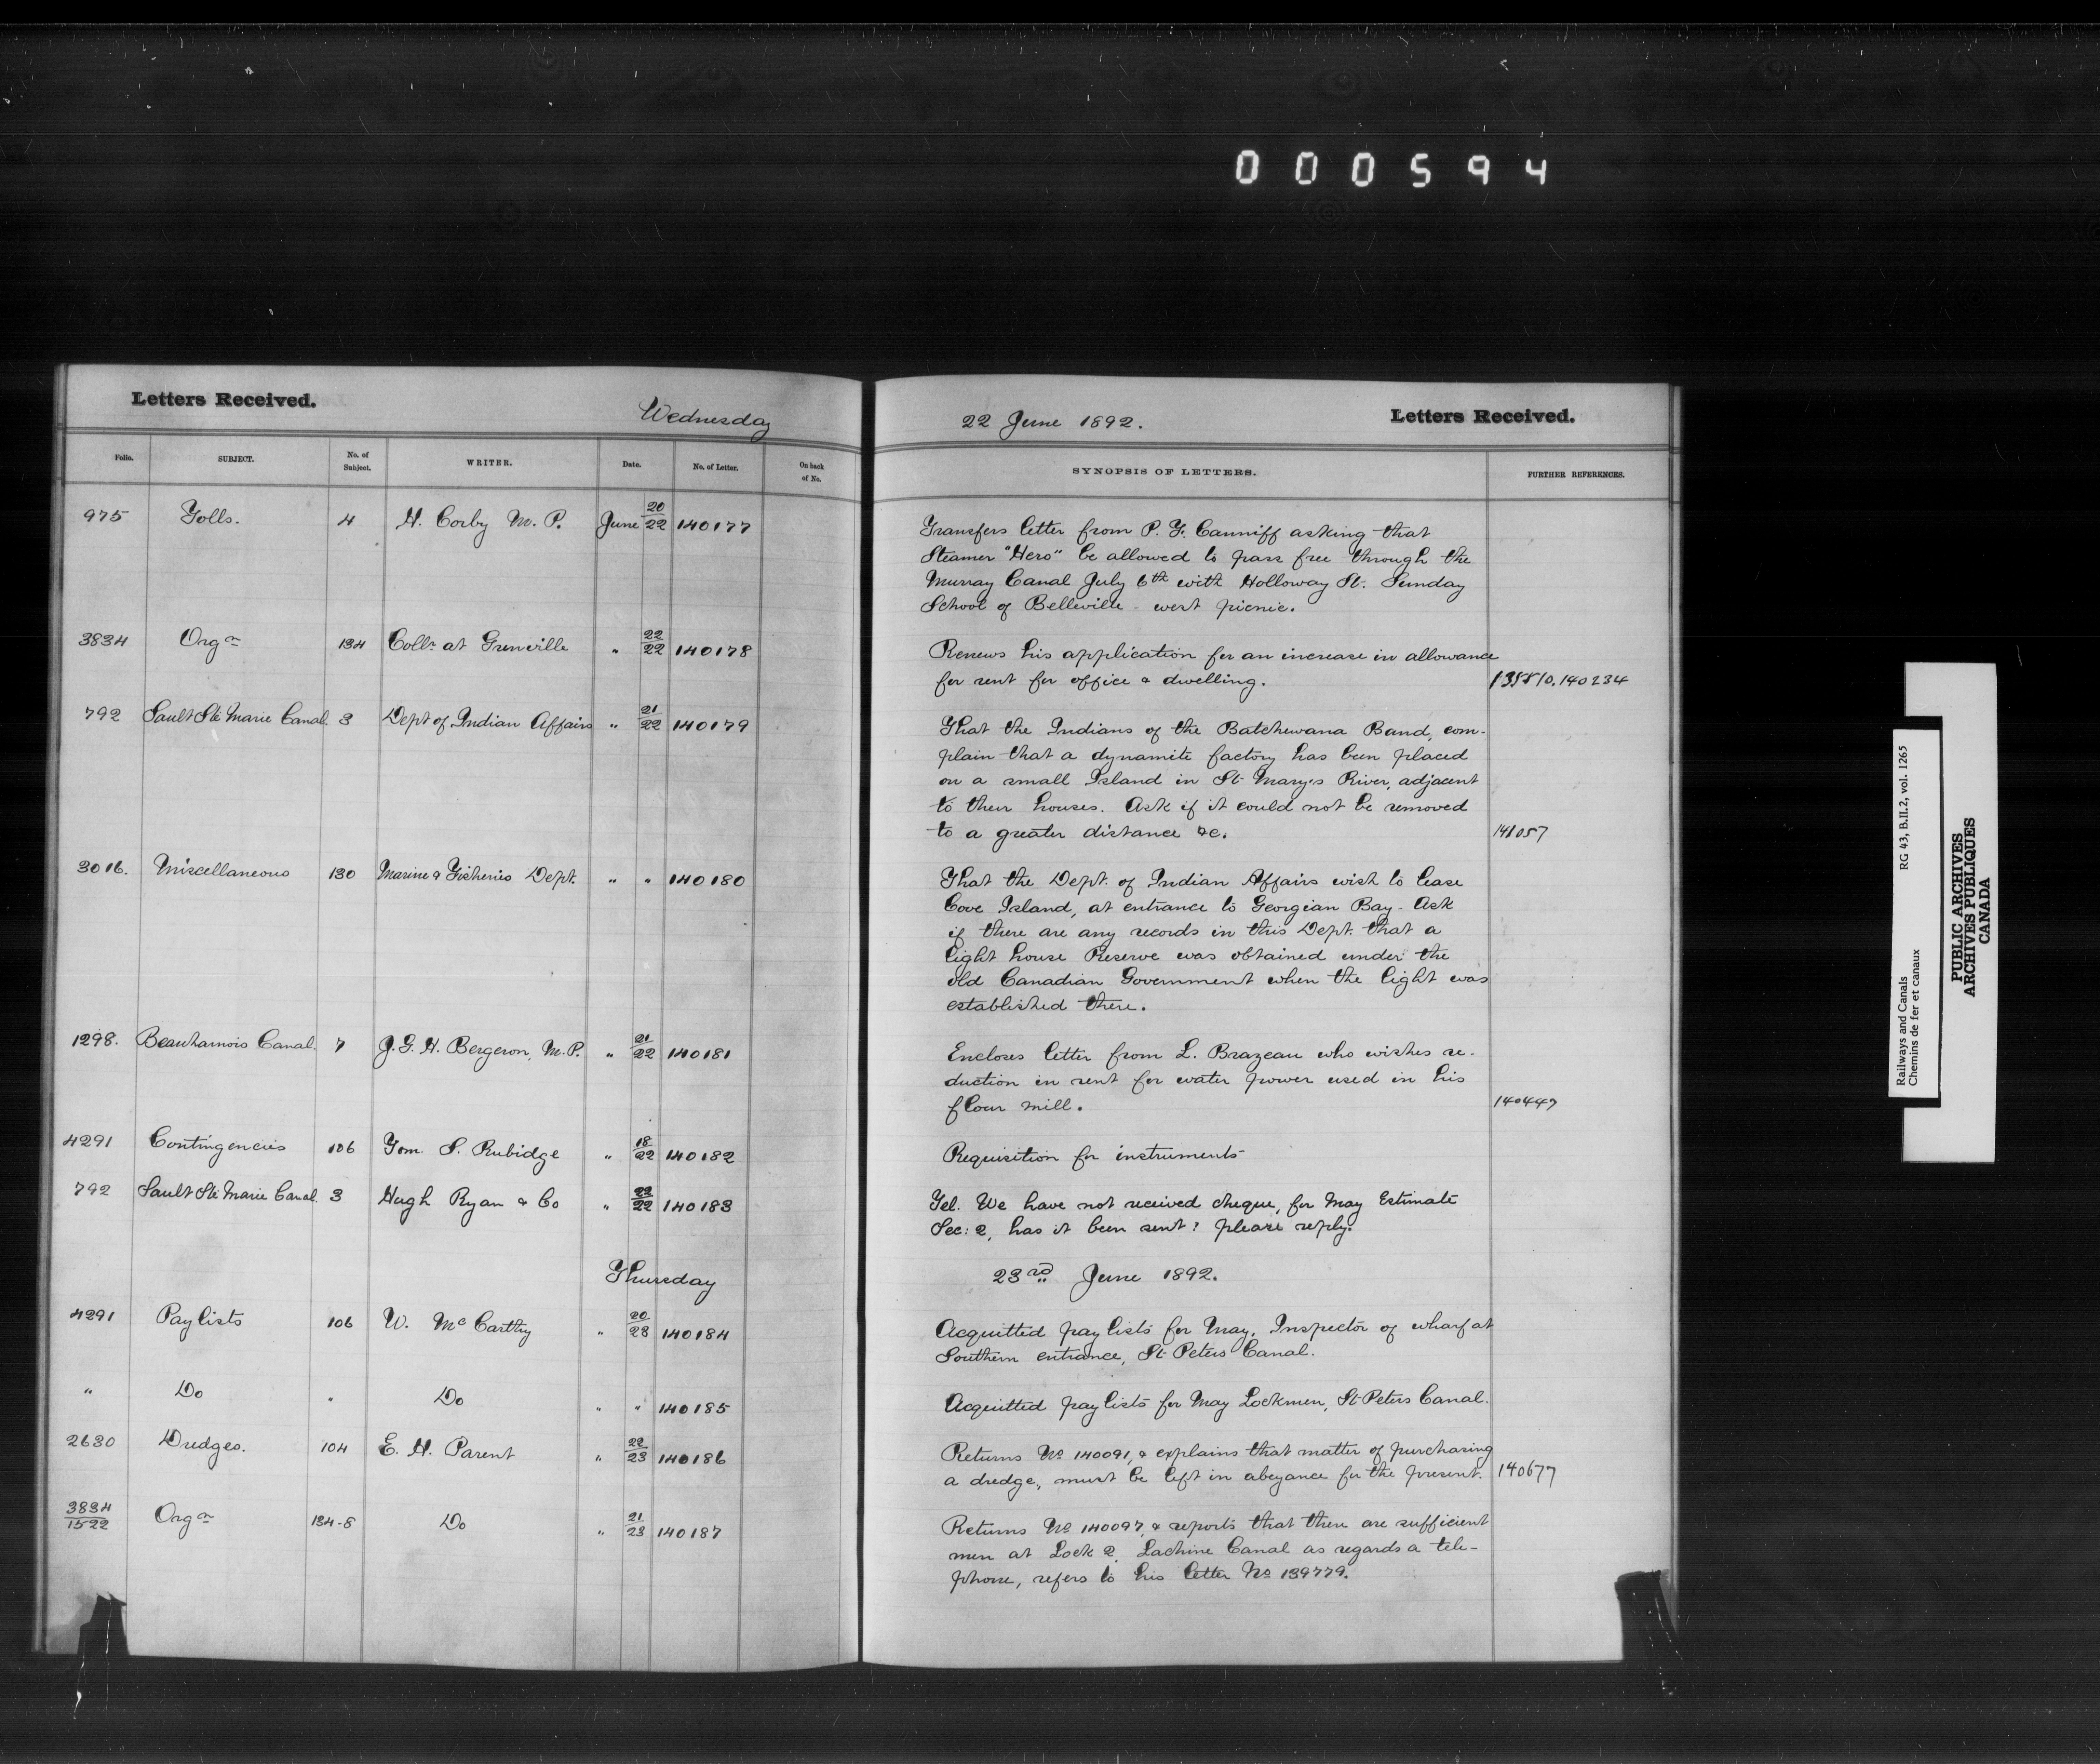 000594
Letters Received.
Wednesday
22 June 1892.
Letters Received.
Folio. SUBJECT. No. of Subject. WRITER. Date. No. of Letter. On back of No. SYNOPSIS OF LETTERS. FURTHER REFERENCES.
975 Tolls. 4 H. Corby M. P. June 20/22 140177
Transfers letter from P. F. Canniff asking that
Steamer "Hero" be allowed to pass free through the
Murray Canal July 6th with Holloway St. Sunday
School of Belleville - west picnic.
3834 Orgn 134 Collr at Grenville " 22/22 140178
Renews his application for an increase in allowance
for rent for office & dwelling. 140234
792 Sault Ste Marie Canal 3 Dept of Indian Affairs " 21/22 140179
That the Indians of the Batchewana Band, com-
plain that a dynamite factory has been placed
on a small Island in St. Mary's River, adjacent
to their houses. Ask if it could not be removed
to a greater distance &c. 141057
3016. Miscellaneous 130 Marine & Fisheries Dept. " " 140180
That the Dept. of Indian Affairs wish to lease
Cove Island, at entrance to Georgian Bay - Ask
if there are any records in this Dept. that a
light house Reserve was obtained under the
old Canadian Government when the light was
established there.
1298. Beauharnois Canal. 7 J. G. H. Bergeron, M. P. " 21/22 140181
Encloses letter from L. Brazeau who wishes re-
duction in rent for water power used in his
flour mill. 140447
4291 Contingencies 106 Tom. S. Rubidge " 18/22 140182
Requisition for instruments
792 Sault Ste Marie Canal 3 Hugh Ryan & Co " 22/22 140183
Tel. We have not received cheque, for May Estimate
Sec: 2, has it been sent? please reply.
Thursday 23rd June 1892.
4291 Pay lists 106 W. McCarthy " 20/23 140184
Acquitted pay lists for May, Inspector of wharf at
Southern entrance, St. Peters Canal.
" Do " Do " " 140185
Acquitted pay lists for May Lockmen, St. Peters Canal.
2630 Dredges. 104 E. H. Parent " 22/23 140186
Returns No 140091, & explains that matter of purchasing
a dredge, must be left in abeyance for the present. 140677
3834/1522 Orgn 134-8 Do " 21/23 140187
Returns No 140097, & reports that there are sufficient
men at Lock 2, Lachine Canal as regards a tele-
phone, refers to his letter No 139779.
Railways and Canals RG 43, B.II.2, vol. 1265
Chemins de fer et canaux
PUBLIC ARCHIVES
ARCHIVES PUBLIQUES
CANADA